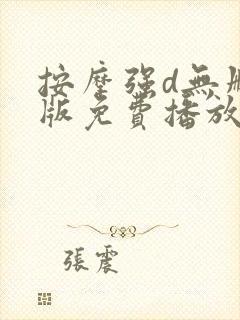 按摩强d無
版免費播放
張震